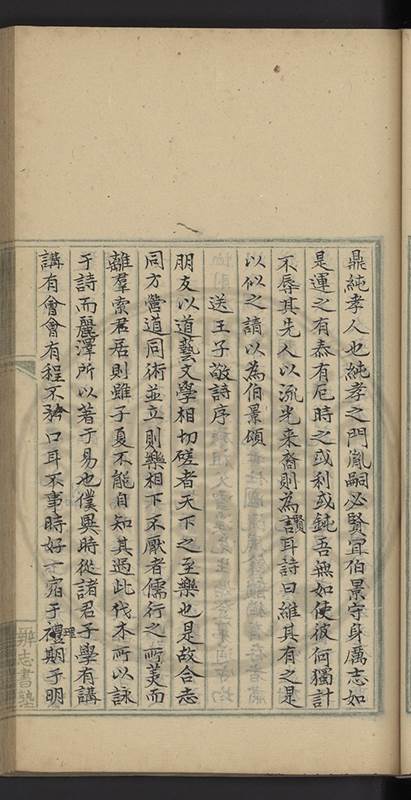 鼎純孝人也純孝之門胤嗣必賢宜伯景守身厲志如
是運之有泰有厄時之或利或鈍吾無如使彼何獨計
不辱其先人以流光來裔則為讚耳詩曰維其有之是
以似之請以為伯景頌
送王子敬詩序
朋友以道藝文學相切磋者天下之至樂也是故合志
同方營道同術並立則樂相下不厭者儒行之所美而
離羣索君居則雖子夏不能自知其過此伐木所以詠
于詩而麗澤所以著于易也僕與時從諸君子學有講
講有會會有程不矜口耳不事時好一宿于禮理期于明
辨志書塾